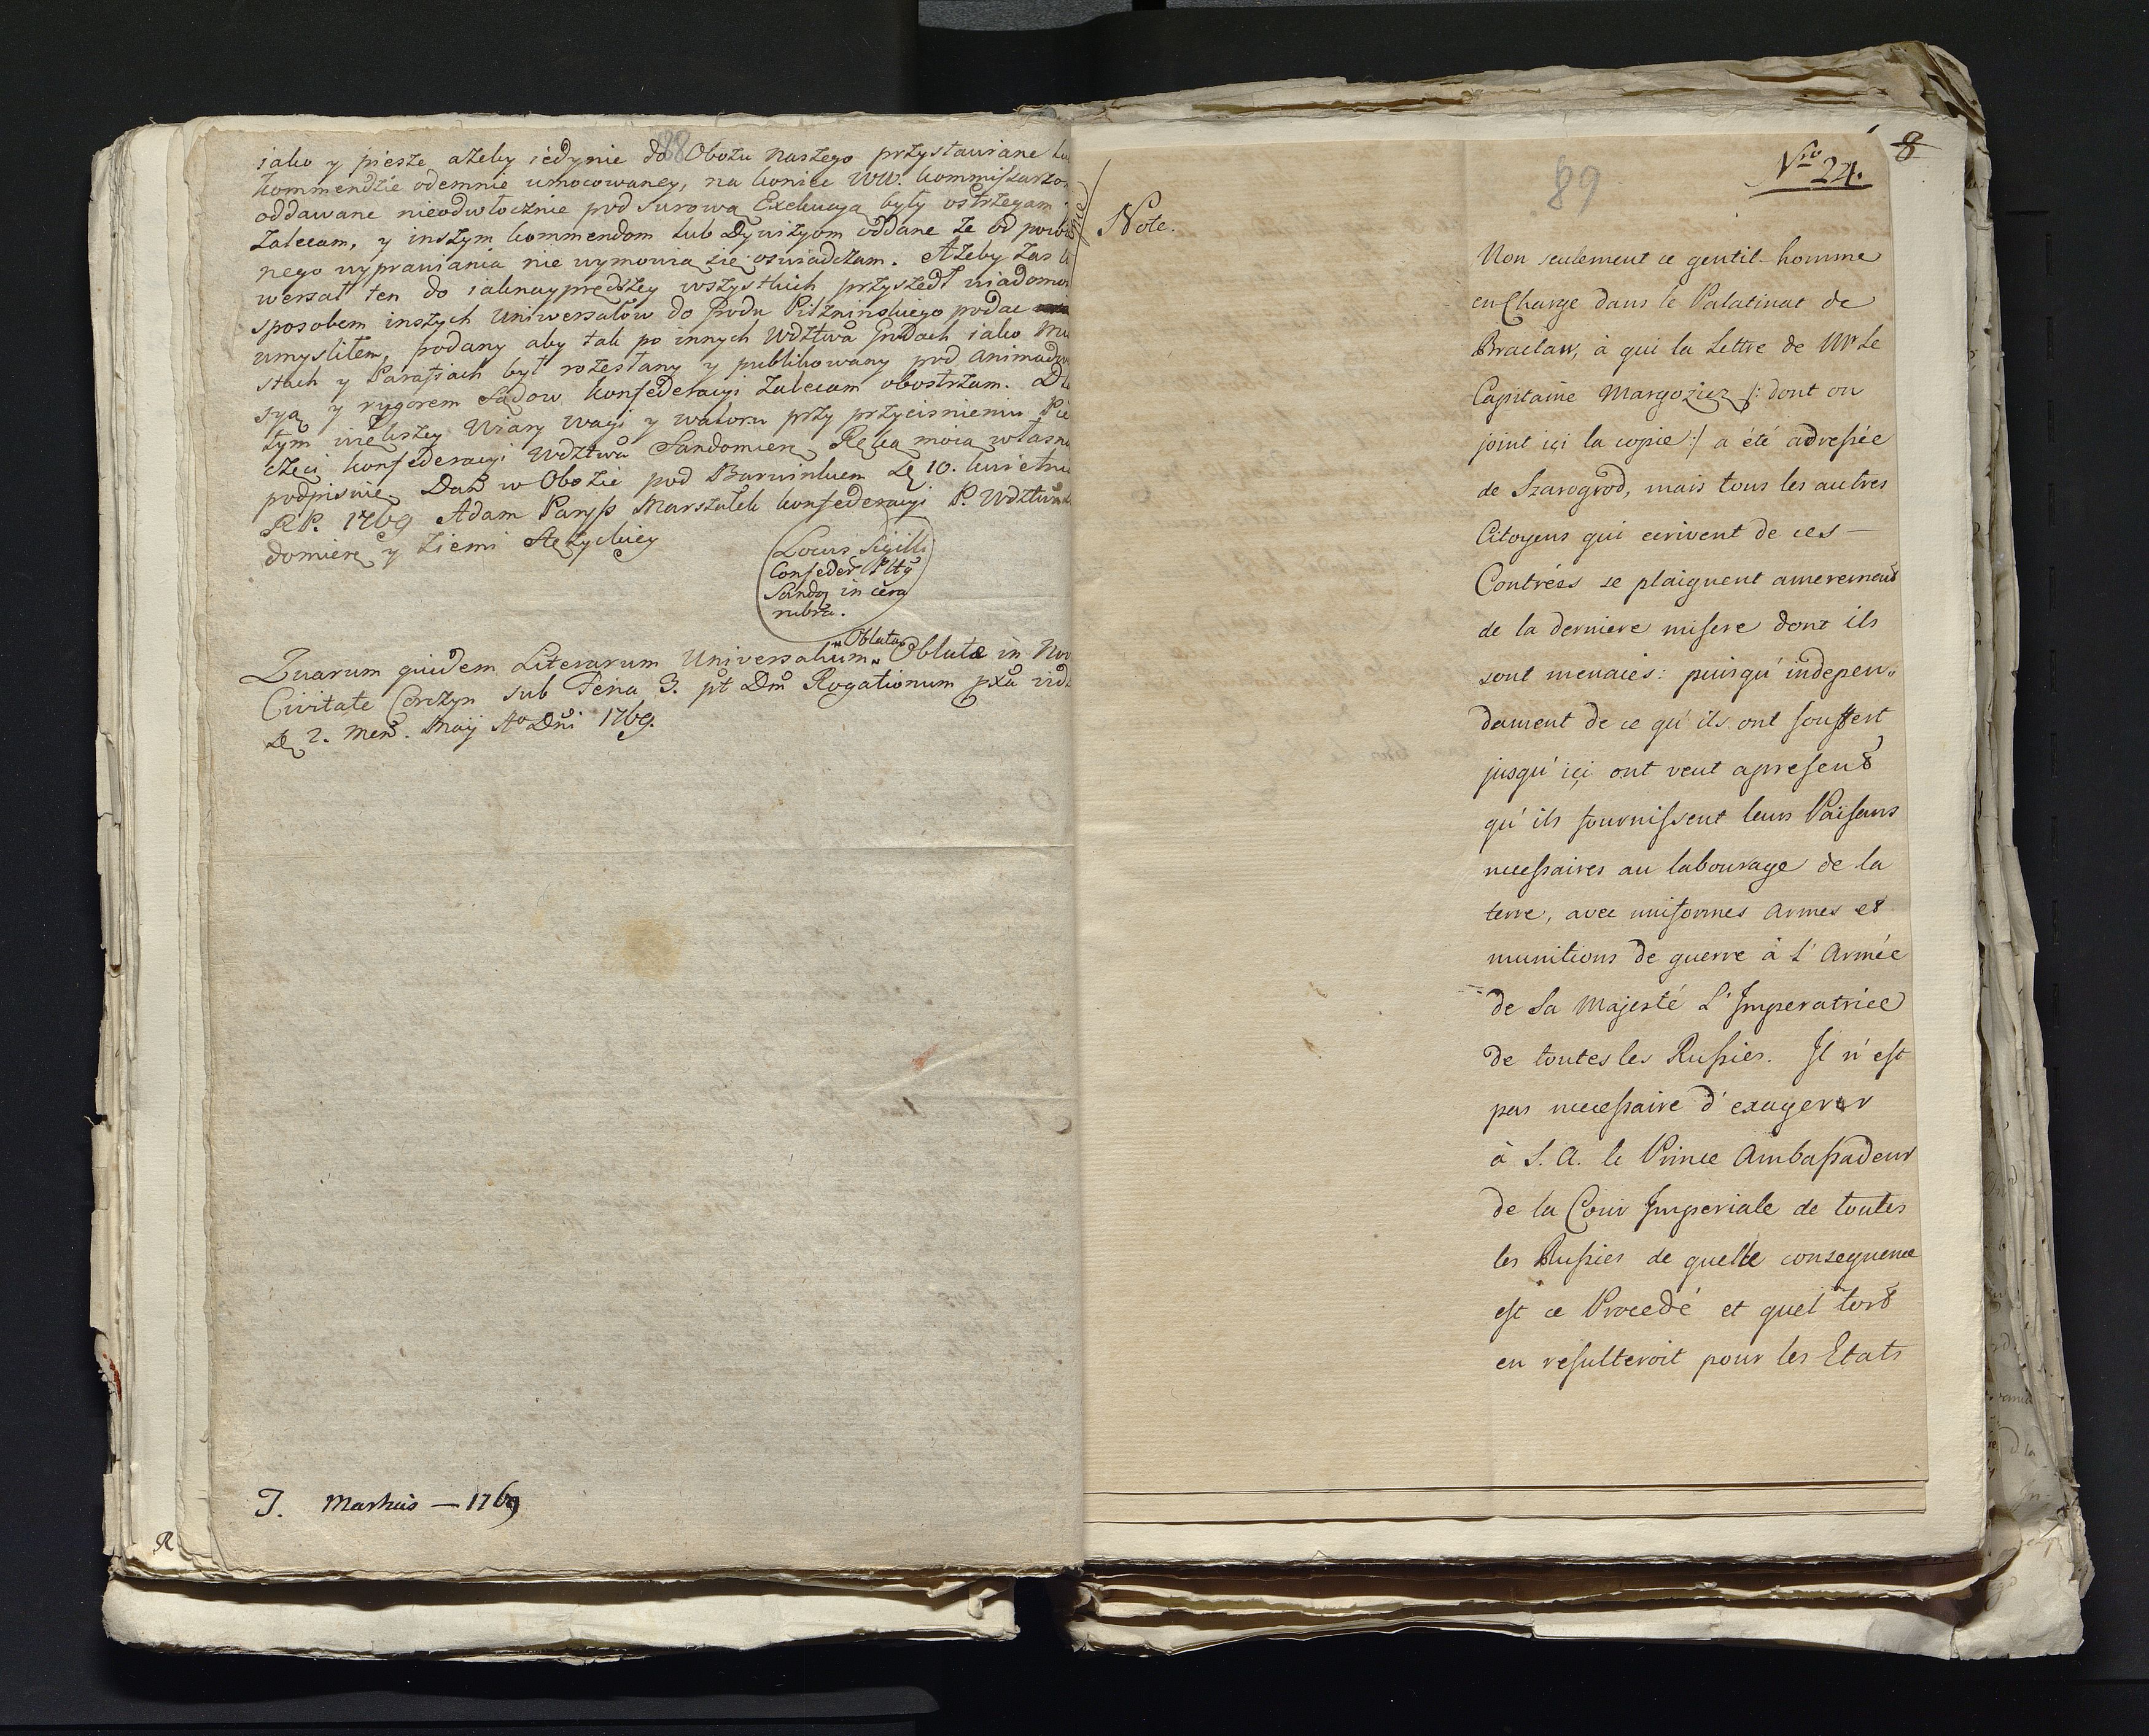 88
iako y piesze ażeby iedynie do Obozu naszego przystawiane lu
kommendzie odemnie umocowaney, na koniec WW. kommissarzo
oddawane nieodwłocznie pod surową Exekucyą były ostrzegam
zalecam, y inszym kommendom lub Dywizyom oddane że od powin
nego wyprawiania nie wymowią się oswiadczam. Ażeby zas U
wersał ten do iaknayprędszey wszystkich przyszedł wiadomo
sposobem inszych Uniwersałow do Grodu Pilzninskiego podać
umysliłem, podany aby tak po innych Wdztwa Grodach iako Mia
stach y Parafiach był rozesłany y publikowany pod animadwer
syą y rygorem Sądow konfederacyi zalecam obostrzam. Dla
tym większey Wiary Wagi y waloru przy przycisnieniu Pie
częci konfederacyi Wdztwa Sandomier Ręką moią własną
podpisuię. Dan w Obozie pod Barwinkiem D. 10. kwietnia
R.P. 1769 Adam Paryss Marszałek konfederacyi P. Wdztwa
domier y Ziemi Stężyckiey
Locus Sigilli
Confeder Pltg
Sando in cera
rubra.
Quarum quidem Literarum Universalium "Oblata" Oblatæ in Nov
Civitate Corczyn sub Feria 3. pt Dm Rogationum pxa vid
D 2. Men. Maij Ao Dni 1769.
J. Markus — 1769
R
8
Nro 24.
89
Note.
Non seulement ce gentil-homme
en Charge dans le Palatinat de
Braclaw, à qui la Lettre de Mr Le
Capitaine Margoziez /: dont on
joint içi la copie :/ a été adressée
de Szarogrod, mais tous les autres
Citoyens qui ecrivent de ces —
Contrées se plaignent amerement
de la derniere misere dont ils
sont menacés: puisqu' indepen„
dament de ce qu' ils ont souffert
jusqu' içi ont veut apresent
qu' ils fournissent leurs Païsans
necessaires au labourage de la
terre, avec uniformes Armes et
munitions de guerre à l' Armée
de Sa Majesté L' Imperatrice
de toutes les Russies. Il n' est
pas necessaire d' exagerer
à S. A. le Prince Ambassadeur
de la Cour Imperiale de toutes
les Russies de quelle consequence
est ce Procedé et quel tort
en resulteroit pour les Etats